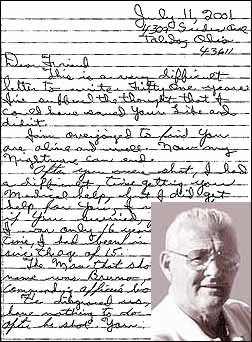 July 11, 2001
Toledo, Ohio
43611
Dear Friend
This is a very difficult
letter to write. Fifty One years
I've suffered the thought that I
could have saved your life and
didn't.
I'm overjoyed to find you
are alive and well. Now my
Nightmare can end.
After you were shot, I had
a difficult time getting you
Medical help. but I did get
help for you, I
if you survived
I was only 16 years
time, I had been in
since the age of 15.
The Man that sho
name was Bruno,
Commanding officer's bo
He disgraced us,
have nothing to do
after he shot you.